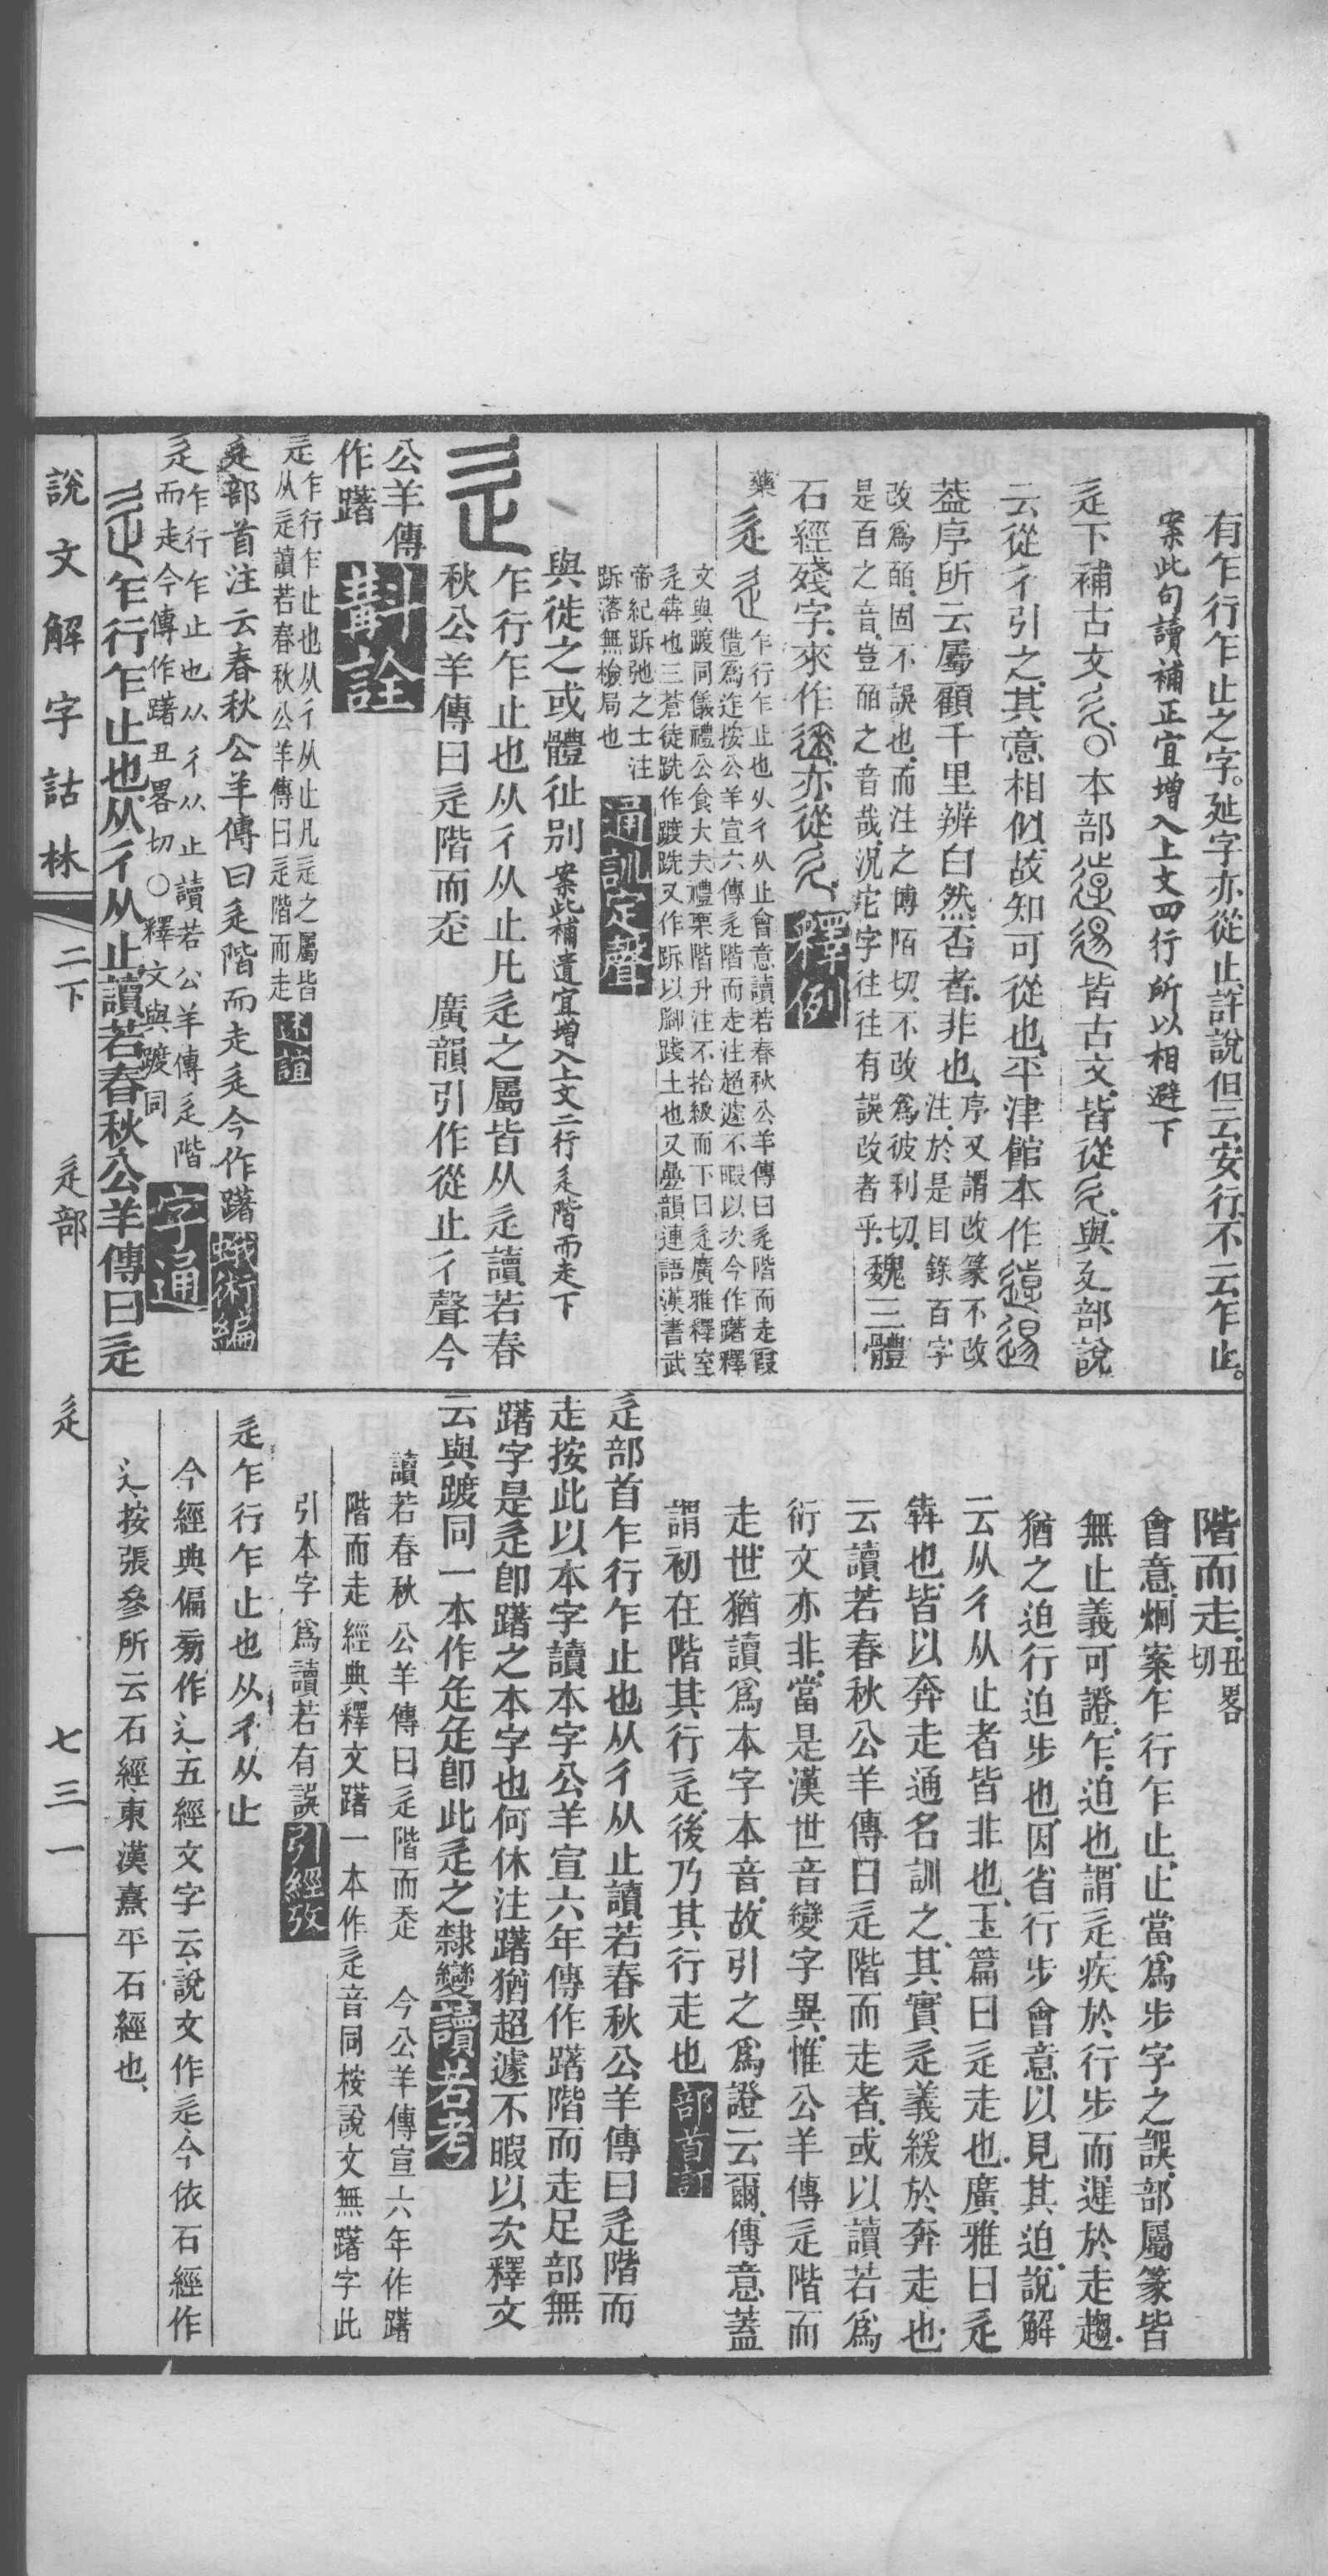 有乍行乍止之字。延字亦從止許說但云安行不云乍止。
案此句讀補正宜增入上文四行所以相避下
辵下補古文〇本部皆古文皆從與廴部說
云從彳引之其意相似故知可從也平津館本作
葢序所云屬顧千里辨白然否者非也序又謂改篆不改
注於是目錄百字
改爲皕固不誤也而注之博陌切不改爲彼利切
是百之音豈皕之音哉況它字往往有誤改者乎魏三體
石經殘字來作亦從釋例
藥辵乍行乍止也从彳从止會意讀若春秋公羊傳曰辵階而走叚
借爲迮按公羊宣六傳辵階而走注超遽不暇以次今作躇釋
文與踱同儀禮公食大夫禮栗階升注不拾級而下曰辵廣雅釋室
辵犇也三蒼徒跣作踱跣又作跅以腳踐土也又疊韻連語漢書武
帝紀跅弛之士注
跅落無檢局也通訓定聲
與徙之或體征别案此補遺宜增入上文二行辵階而走下
乍行乍止也从彳从止凡辵之屬皆从辵讀若春
秋公羊傳曰辵階而辵　廣韻引作從止彳聲今
公羊傳
作躇斠詮
辵乍行乍止也从彳从止凡辵之屬皆
从辵讀若春秋公羊傳曰辵階而走述誼
辵部首注云春秋公羊傳曰辵階而走辵今作躇蛾術編
辵乍行乍止也从彳从止讀若公羊傳辵階
而走今傳作躇丑畧切〇釋文與踱同字通
乍行乍止也从彳从止讀若春秋公羊傳曰辵
階而走丑畧
切
會意炯案乍行乍止止當爲步字之誤部屬篆皆
無止義可證乍迫也謂辵疾於行步而遲於走趨
猶之迫行迫步也因省行步會意以見其迫說解
云从彳从止者皆非也玉篇曰辵走也廣雅曰辵
犇也皆以奔走通名訓之其實辵義緩於奔走也
云讀若春秋公羊傳曰辵階而走者或以讀若爲
衍文亦非當是漢世音變字異惟公羊傳辵階而
走世猶讀爲本字本音故引之爲證云爾傳意蓋
謂初在階其行辵後乃其行走也部首訂
辵部首乍行乍止也从彳从止讀若春秋公羊傳曰辵階而
走按此以本字讀本字公羊宣六年傳作躇階而走足部無
躇字是辵卽躇之本字也何休注躇猶超遽不暇以次釋文
云與踱同一本作辵辵卽此辵之隸變讀若考
讀若春秋公羊傳曰辵階而辵　今公羊傳宣六年作躇
階而走經典釋文躇一本作辵音同桉說文無躇字此
引本字爲讀若有誤引經攷
辵乍行乍止也从彳从止
今經典偏旁作辶五經文字云說文作辵今依石經作
辶按張參所云石經東漢熹平石經也
說文解字詁林　二下　辵部　辵　七三一